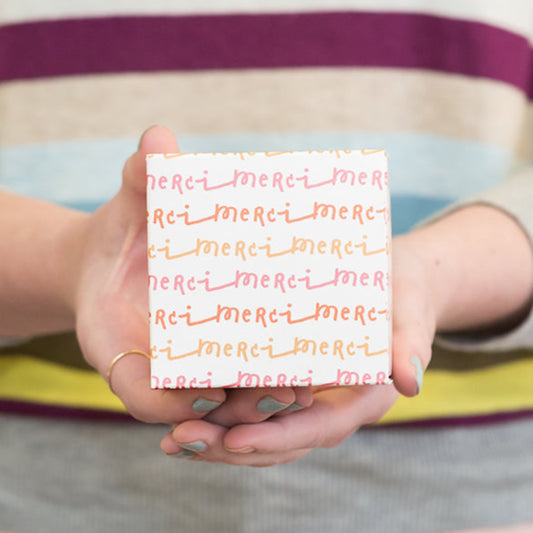 merci merci mer
erci merci merc
ci merci merci
merci merci mer
erci merci merc
rci merci merci
merci merci mer